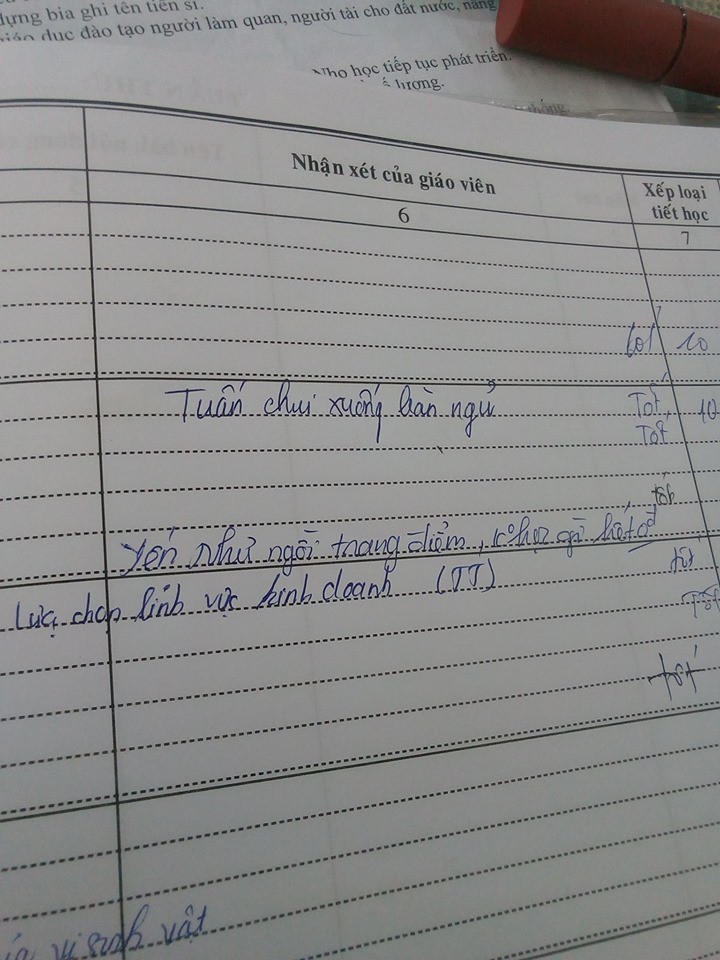 dựng bia ghi tên tiến sĩ.
giáo dục đào tạo người làm quan, người tài cho đất nước, nâng
Nho học tiếp tục phát triển.
lượng.
thống
Nhận xét của giáo viên
Xếp loại tiết học
6
7
tốt 10
Tuấn chui xuống bàn ngủ
Tốt, 10
Tốt
tốt
Yến như ngồi trang điểm, khọc gì hết
Lựa chọn lĩnh vực kinh doanh (TT)
tốt
Tốt
tốt
vi sinh vật